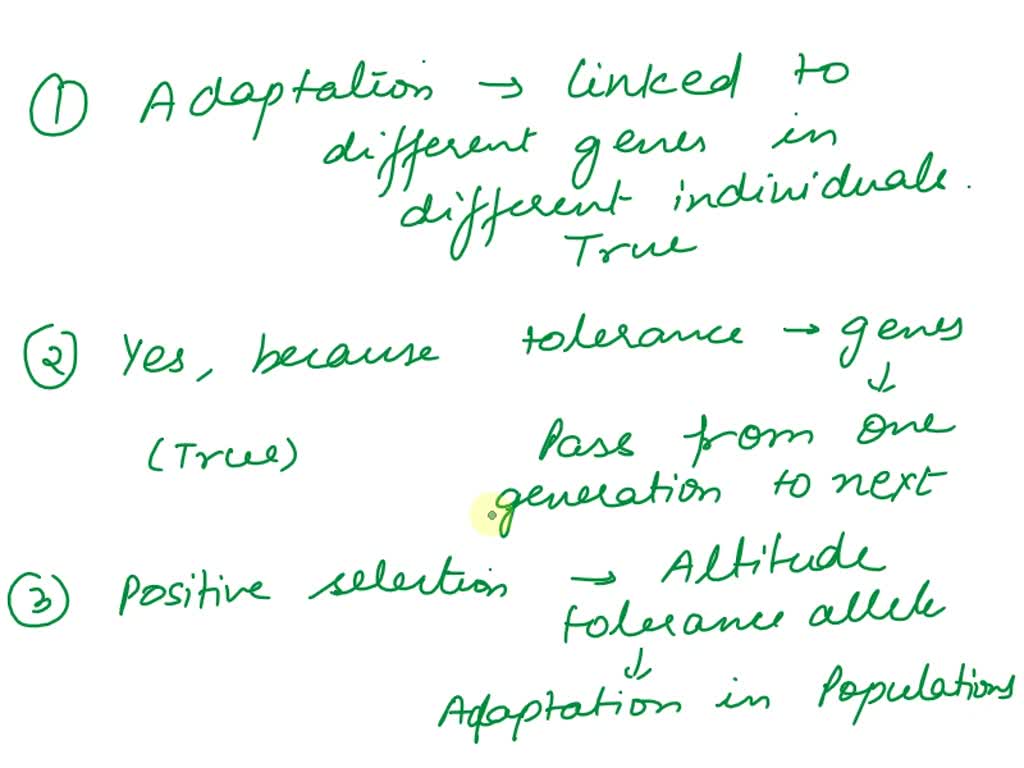 ① Adaptation → linked to
different genes in
different individuals.
True
② Yes, because tolerance → genes
↓
(True) Pass from one
generation to next
③ Positive selection → Altitude
tolerance allele
↓
Adaptation in Populations